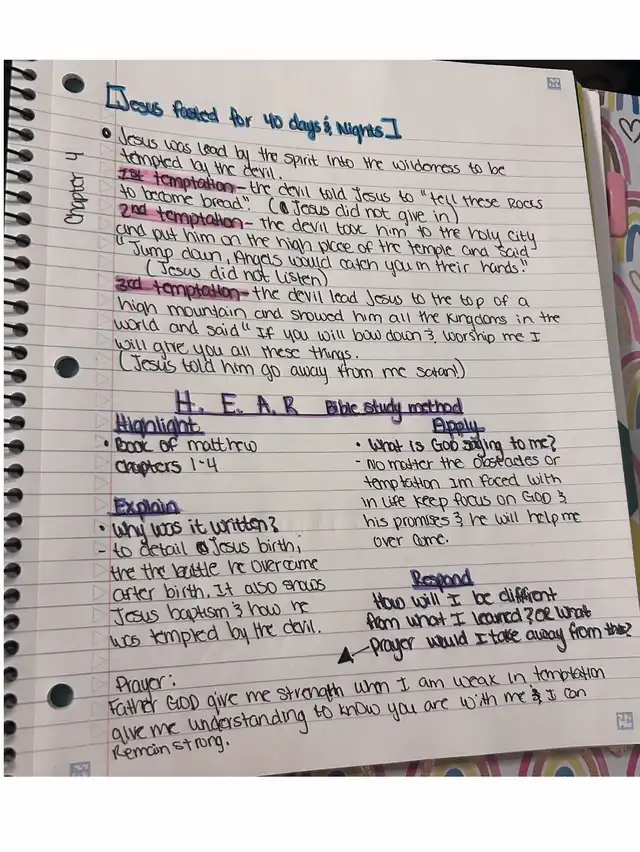 Chapter 4
[Jesus fasted for 40 days & Nights]
Jesus was lead by the spirit into the wilderness to be
tempted by the devil.
1st temptation - the devil told Jesus to "tell these Rocks
to become bread". (Jesus did not give in)
2nd temptation - the devil took him to the holy city
and put him on the high place of the temple and said
"Jump down, Angels would catch you in their hands!"
(Jesus did not listen)
3rd temptation - the devil lead Jesus to the top of a
high mountain and showed him all the kingdoms in the
world and said " If you will bow down & worship me I
will give you all these things.
(Jesus told him go away from me satan!)
H. E. A. R Bible study method
Highlight
• Book of matthew
chapters 1-4
Explain
• why was it written?
- to detail Jesus birth,
the the battle he overcame
after birth. It also shows
Jesus baptism & how he
was tempted by the devil.
Apply
• What is GOD saying to me?
- No matter the obstacles or
temptation Im faced with
in life keep focus on GOD &
his promises & he will help me
over come.
Respond
How will I be different
from what I learned? or what
prayer would I take away from this?
Prayer:
Father GOD give me strength when I am weak in temptation
give me understanding to know you are with me & I can
Remain strong.